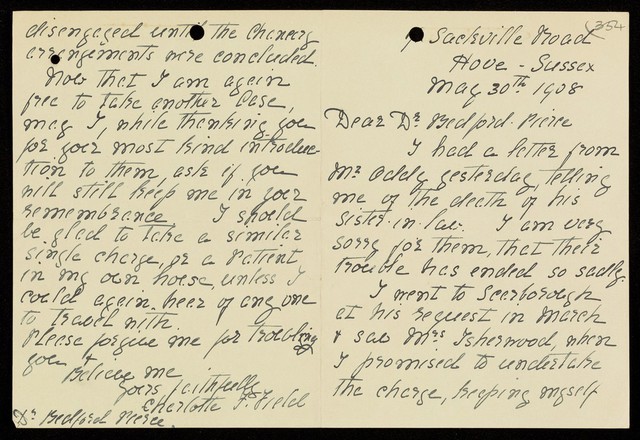 354
Sackville Road
Hove - Sussex
May 30th 1908
Dear Dr Bedford-Pierce
I had a letter from
Mr Oddy yesterday, telling
me of the death of his
sister-in-law. I am very
sorry for them, that their
trouble has ended so sadly.
I went to Scarborough
at his request in March
& saw Mrs Isherwood, when
I promised to undertake
the charge, keeping myself
disengaged until the Chancery
arrangements were concluded.
Now that I am again
free to take another Case,
may I, while thanking you
for your most kind introduc-
tion to them, ask if you
will still keep me in your
remembrance I should
be glad to take a similar
single charge, or a Patient
in my own house, unless I
could again hear of any one
to travel with.
Please forgive me for troubling
you &
Believe me
yours faithfully
Charlotte F. Field
Dr Bedford Pierce.